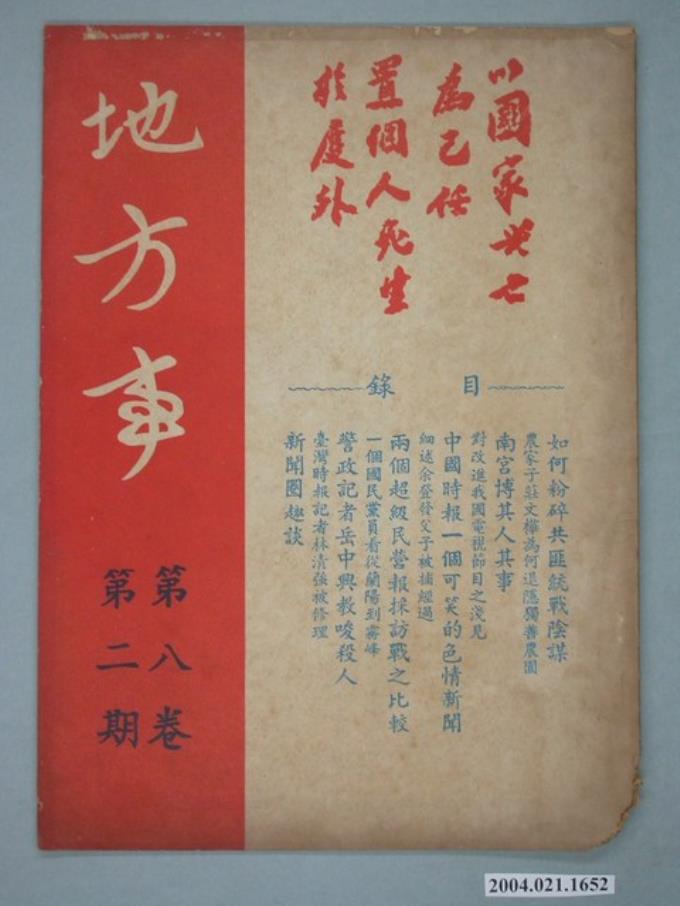 以國家興亡
為己任
置個人死生
於度外
地方事
第八卷
第二期
目錄
如何粉碎共匪統戰陰謀
農家子莊文樺為何退隱獨善農園
南宮博其人其事
對改進我國電視節目之淺見
中國時報一個可笑的色情新聞
細述余登發父子被捕經過
兩個超級民營報採訪戰之比較
一個國民黨員看從蘭陽到霧峰
警政記者岳中興教唆殺人
臺灣時報記者林清強被修理
新聞圈趣談
2004.021.1652